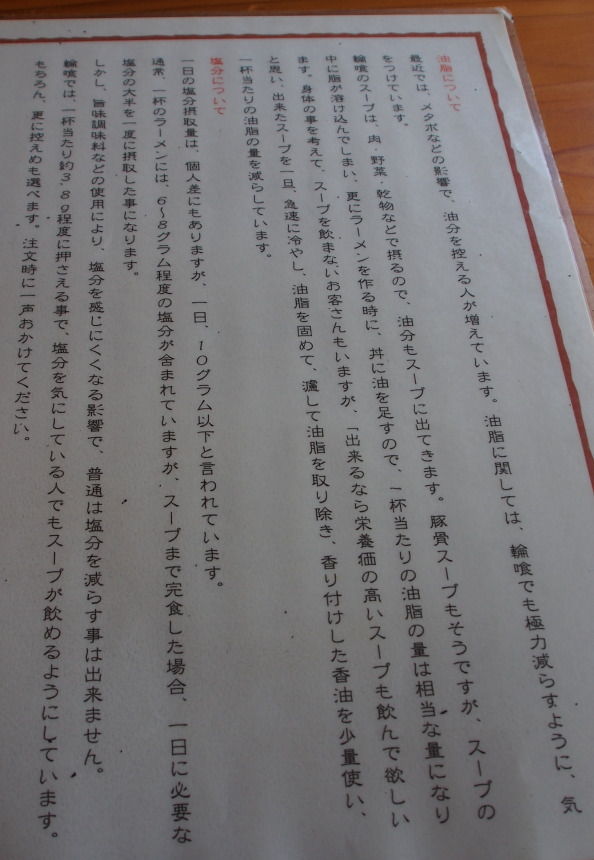 油脂について
最近では、メタボなどの影響で、油分を控える人が増えています。油脂に関しては、輪喰でも極力減らすように、気
をつけています。
輪喰のスープは、肉・野菜・乾物などで摂るので、油分もスープに出てきます。豚骨スープもそうですが、スープの
中に脂が溶け込んでしまい、更にラーメンを作る時に、丼に油を足すので、一杯当たりの油脂の量は相当な量になり
ます。身体の事を考えて、スープを飲まないお客さんもいますが、「出来るなら栄養価の高いスープも飲んで欲しい
と思い、出来たスープを一旦、急速に冷やし、油脂を固めて、濾して油脂を取り除き、香り付けした香油を少量使い、
一杯当たりの油脂の量を減らしています。
塩分について
一日の塩分摂取量は、個人差にもありますが、一日、10グラム以下と言われています。
通常、一杯のラーメンには、6～8グラム程度の塩分が含まれていますが、スープまで完食した場合、一日に必要な
塩分の大半を一度に摂取した事になります。
しかし、旨味調味料などの使用により、塩分を感じにくくなる影響で、普通は塩分を減らす事は出来ません。
輪喰では、一杯当たり約3.8g程度に押さえる事で、塩分を気にしている人でもスープが飲めるようにしています。
もちろん、更に控えめも選べます。注文時に一声おかけてください。